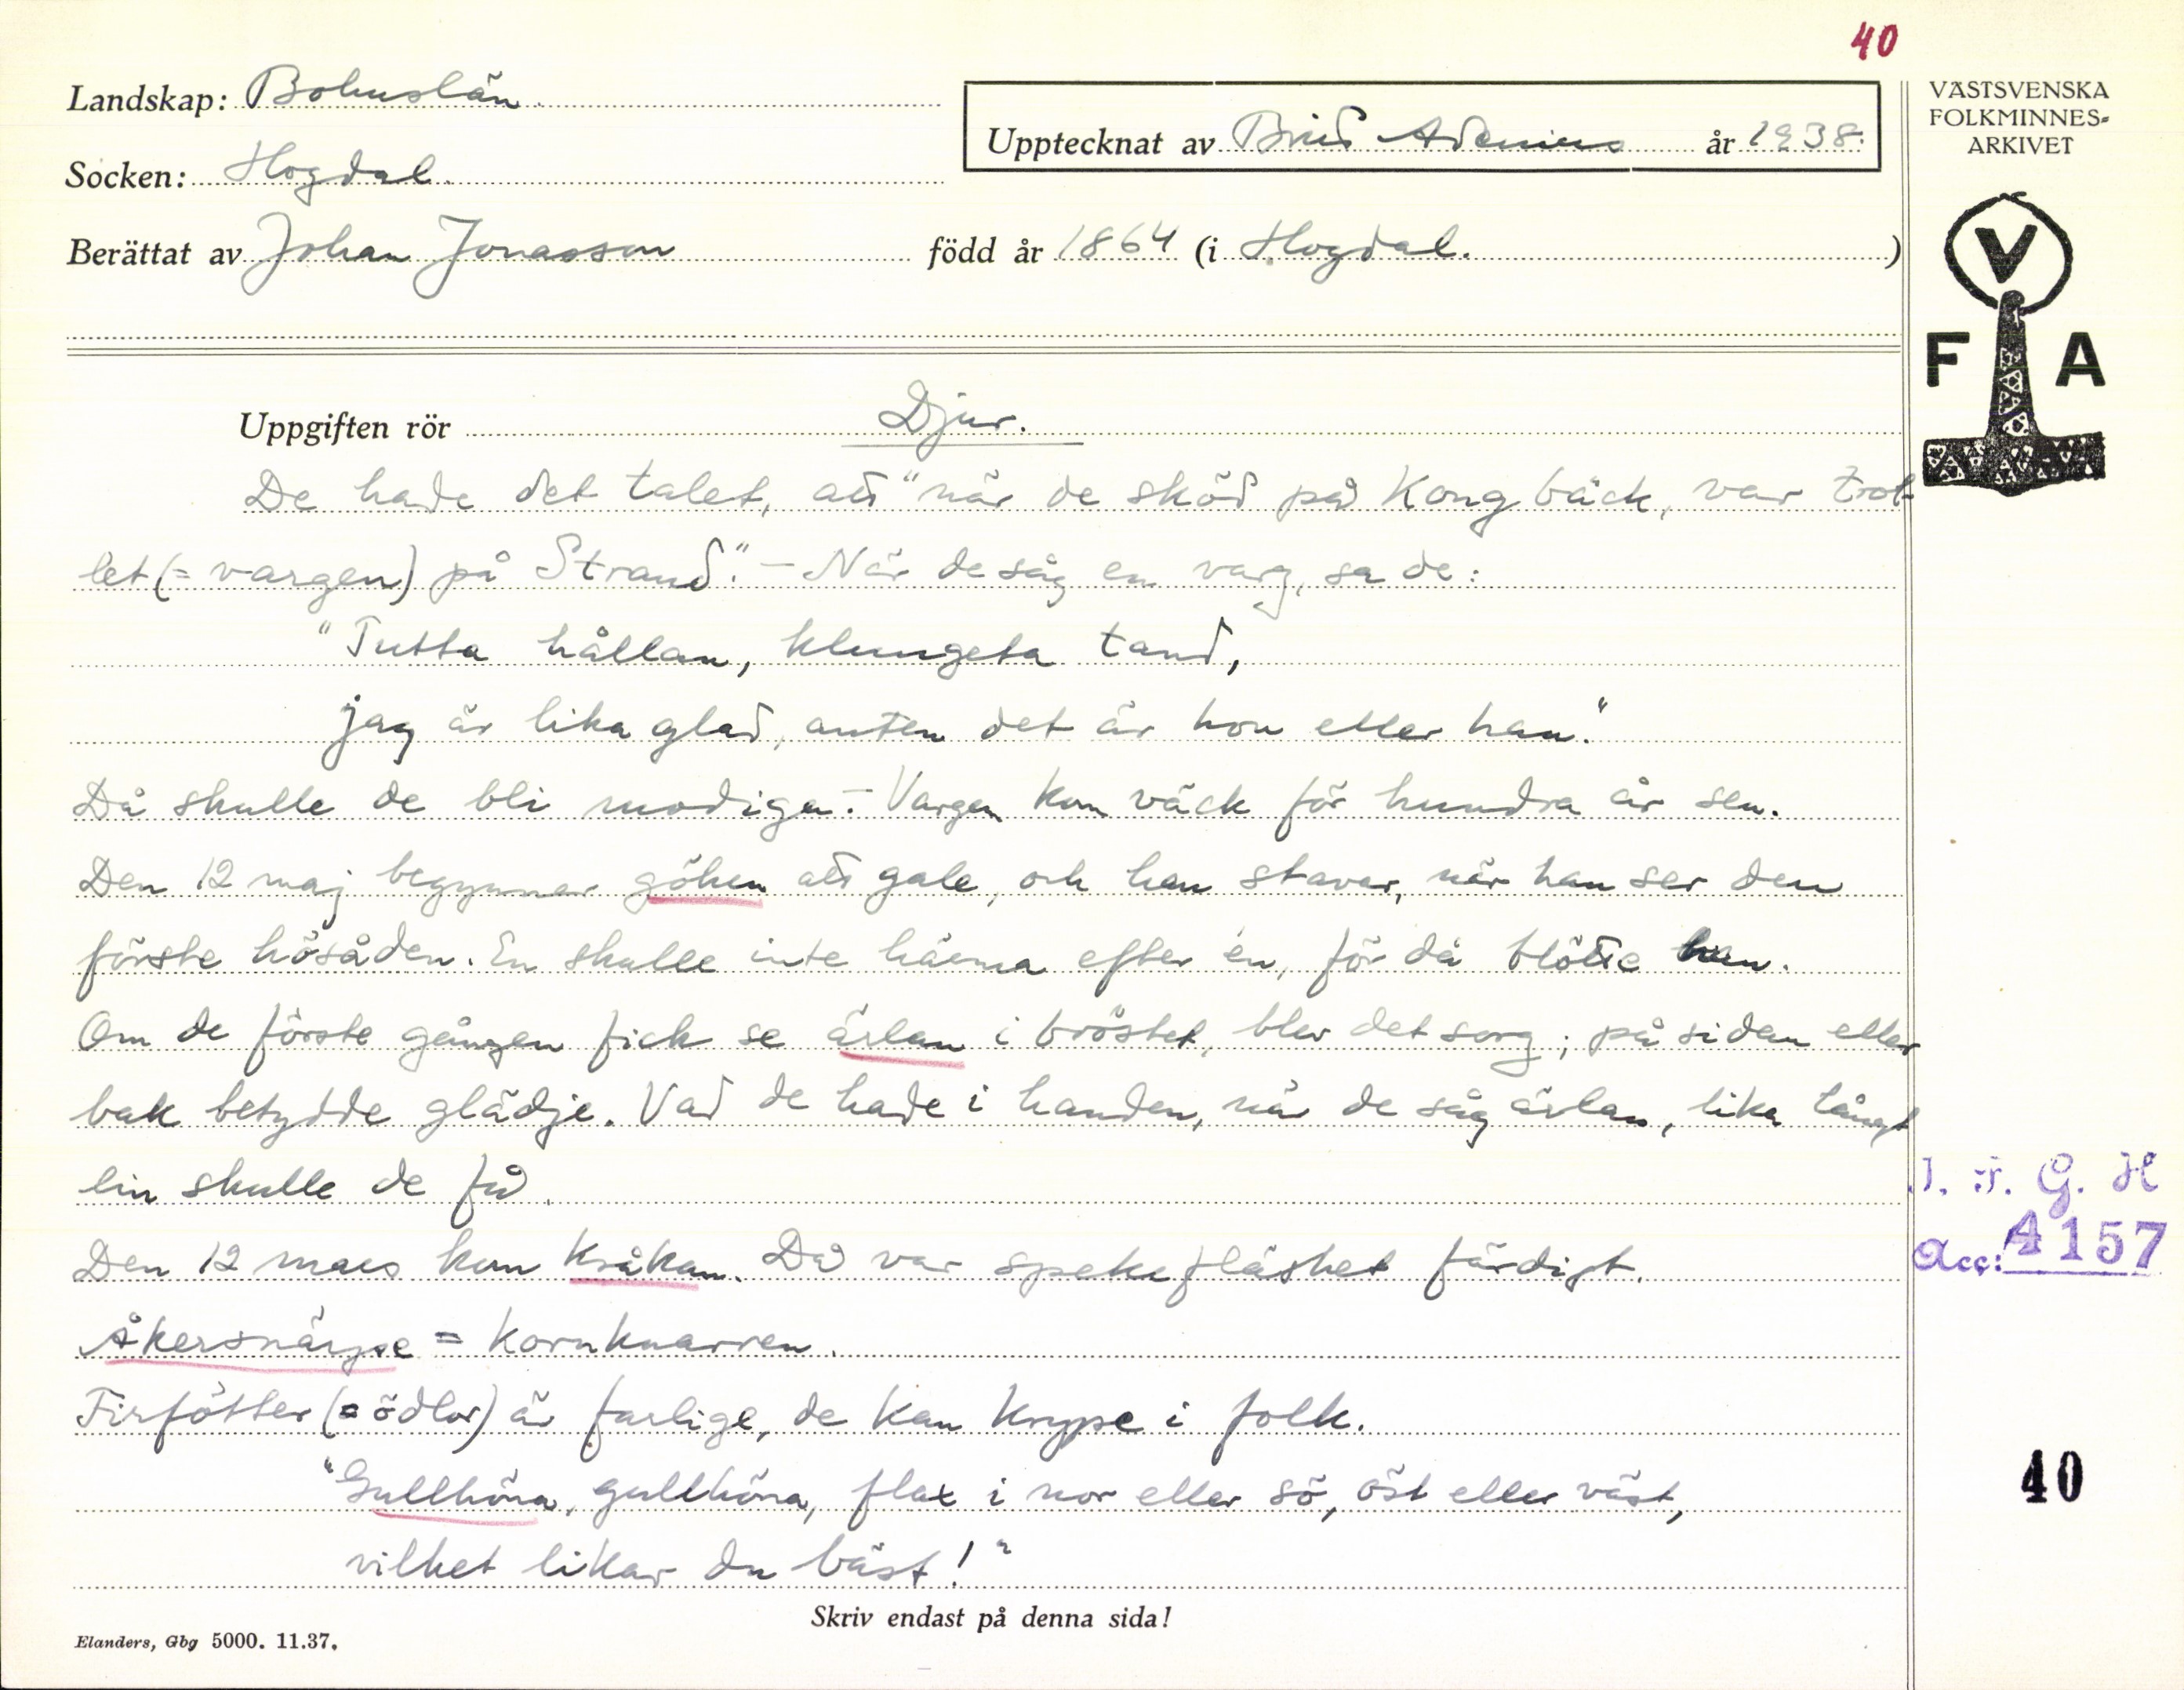 40
Landskap: Bohuslän
Upptecknat av Brit Adenius år 1938.
Socken: Hogdal.
Berättat av Johan Jonasson född år 1864 (i Hogdal.)
VÄSTSVENSKA
FOLKMINNES-
ARKIVET
V
F A
Uppgiften rör Djur.
De hade det talet, att "när de sköt på Kong bäck, var trol-
let (= vargen) på Strand." – När de såg en varg, sa de:
"Tutta hållan, klungeta tand,
jag är lika glad, anten det är hon eller han."
Då skulle de bli modiga. – Vargen kom väck för hundra år sen.
Den 12 maj begynner göken att gale, och han stavar, när han ser den
förste hösåden. En skulle inte härma efter én, för då blötte han.
Om de förste gången fick se ärlan i bröstet, blev det sorg; på sidan eller
bak betydde glädje. Vad de hade i handen, när de såg ärlan, lika långt
lin skulle de få.
Den 12 mars kom kråkan. Då var spekefläsket färdigt.
Åkersnärpe = kornknarren.
Firfötter (= ödlor) är farlige, de kan krype i folk.
"Gullhöna, gullhöna, flax i nor eller sö, öst eller väst,
vilket likar du bäst!"
I. F. G. H
Acc: 4157
40
Skriv endast på denna sida!
Elanders, Gbg 5000. 11.37.